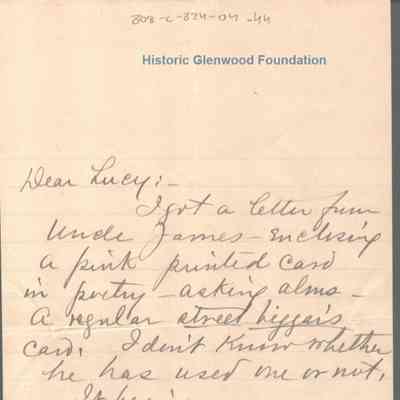 808-C-824-04-44
Historic Glenwood Foundation
Dear Lucy:-
I got a letter from
Uncle James - enclosing
a pink printed card
in poetry - asking alms -
A regular street biggars
card. I don't know whether
he has used one or not.